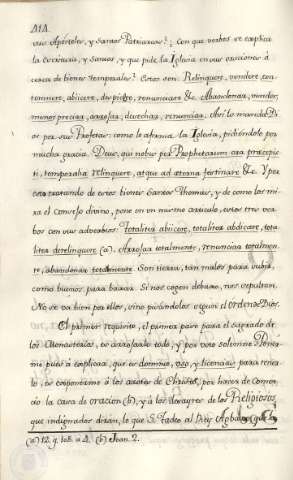 414.
sus Apóstoles, y santos Patriarcas? Con que verbos se explica
la Escritura, y santos, y que pide la Iglesia en sus oraciones á
cerca de bienes temporales? Estos son: Relinquere, vendere, con-
temnere, abiicere, despicere, renunciare &c. Abandonar, vender,
menos preciar, arrojar, desechar, renunciar. Asi lo manda Di-
os por sus Profetas: como lo afirma la Iglesia, pidiendole por
mucha gracia. Deus, qui nobis per Prophetarum ora præcepis-
ti, temporalia relinquere, atque ad æterna festinare &c. Y por
esto tratando de estos bienes Santo Thomas, y de como los mi-
ra el Consejo divino, pone en un mismo articulo, estos tres ver-
bos con sus adverbios. Totaliter abiicere, totaliter abdicare, tota-
liter derelinquere (a). Arrojar totalmente, renunciar totalmen-
te, abandonar totalmente. Son tierra, tan malos para subir,
como buenos para baxar. Si nos cogen debaxo, nos sepultan.
No se va bien por ellos, sino pisándolos segun el orden de Dios.
El primer requisito, el primer paso para el sagrado de
los Monasterios, es arrojarlo todo, y por voto solemne
que es dominio, uso, y licencias para tener-
lo, es exponernos á los azotes de Christo, por hacer de comer-
cio la casa de oracion (b), y á los desayres de los Religiosos
que indignados dirán, lo que S. Tadeo al Rey Agbaro
(a) 12. q. 108. a. 4. (b) Joan. 2.